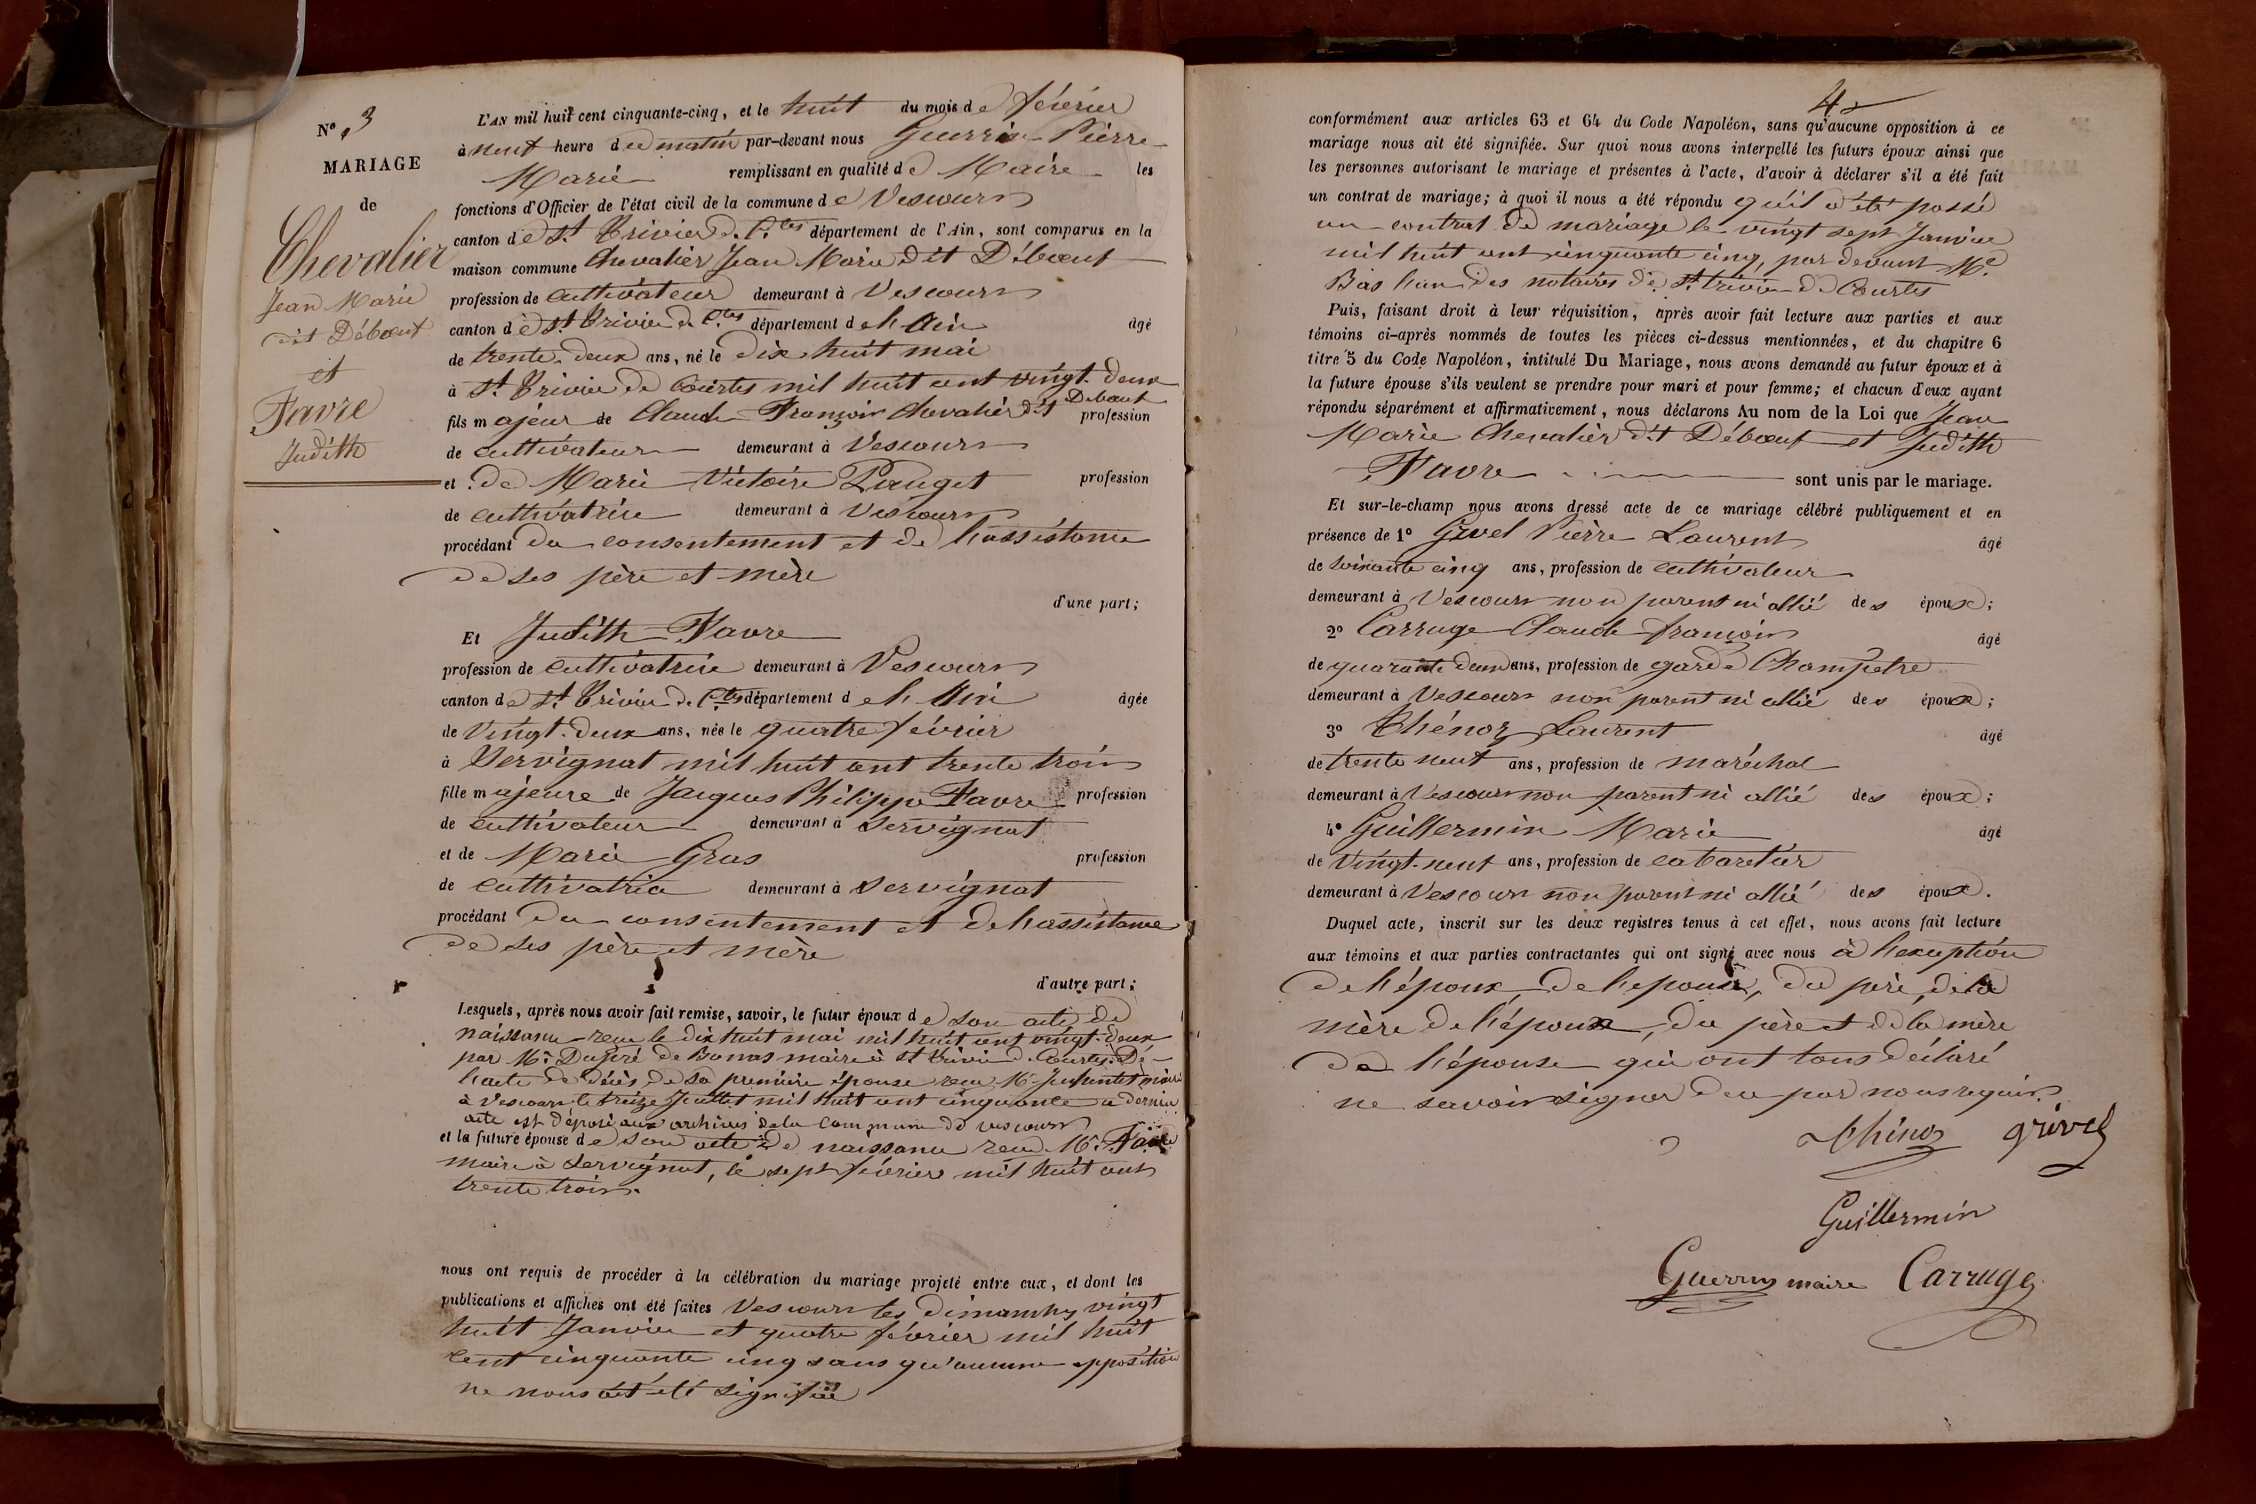 N° 3
MARIAGE
de
Chevalier
Jean Marie
dit Débœuf
et
Favre
Judith
L'AN mil huit cent cinquante-cinq, et le huit du mois de février
à neuf heure du matin par-devant nous Guerrin Pierre
Marie remplissant en qualité de Maire les
fonctions d'Officier de l'état civil de la commune de Vescours
canton de St. Trivier de C.tes département de l'Ain, sont comparus en la
maison commune Chevalier Jean Marie dit Débœuf
profession de cultivateur demeurant à Vescours
canton de St Trivier de C.tes département de l'Ain âgé
de trente-deux ans, né le dix huit mai
à St. Trivier de Courtes mil huit cent vingt-deux
fils majeur de Claude François Chevalier dit Débœuf profession
de cultivateur demeurant à Vescours
et de Marie Victoire Pauget profession
de cultivatrice demeurant à Vescours
procédant du consentement et de l'assistance
de ses père et mère
d'une part;
Et Judith Favre
profession de cultivatrice demeurant à Vescours
canton de St. Trivier de C.tes département de l'Ain âgée
de vingt-deux ans, née le quatre février
à Servignat mil huit cent trente trois
fille majeure de Jacques Philippe Favre profession
de cultivateur demeurant à Servignat
et de Marie Gras profession
de cultivatrice demeurant à Servignat
procédant du consentement et de l'assistance
de ses père et mère
d'autre part;
Lesquels, après nous avoir fait remise, savoir, le futur époux de son acte de
naissance reçu le dix huit mai mil huit cent vingt-deux
par Mr. de Bonas maire à St Trivier de Courtes. De
l'acte de décès de sa première épouse reçu Mr. maire
à Vescours le treize Juillet mil huit cent cinquante ce dernier
acte est déposé aux archives de la commune de Vescours
et la future épouse de son acte de naissance reçu Mr. Favre
maire à Servignat, le sept février mil huit cent
trente trois.
nous ont requis de procéder à la célébration du mariage projeté entre eux, et dont les
publications et affiches ont été faites Vescours les dimanches vingt
huit Janvier et quatre février mil huit
cent cinquante cinq sans qu'aucune opposition
ne nous ait été signifiée
4
conformément aux articles 63 et 64 du Code Napoléon, sans qu'aucune opposition à ce
mariage nous ait été signifiée. Sur quoi nous avons interpellé les futurs époux ainsi que
les personnes autorisant le mariage et présentes à l'acte, d'avoir à déclarer s'il a été fait
un contrat de mariage; à quoi il nous a été répondu qu'il a été passé
un contrat de mariage le vingt sept Janvier
mil huit cent cinquante cinq, par devant Me.
des notaires de St. Trivier de Courtes
Puis, faisant droit à leur réquisition, après avoir fait lecture aux parties et aux
témoins ci-après nommés de toutes les pièces ci-dessus mentionnées, et du chapitre 6
titre 5 du Code Napoléon, intitulé Du Mariage, nous avons demandé au futur époux et à
la future épouse s'ils veulent se prendre pour mari et pour femme; et chacun d'eux ayant
répondu séparément et affirmativement, nous déclarons Au nom de la Loi que Jean
Marie Chevalier dit Débœuf et Judith
Favre sont unis par le mariage.
Et sur-le-champ nous avons dressé acte de ce mariage célébré publiquement et en
présence de 1° Grivel Pierre Laurent âgé
de soixante cinq ans, profession de cultivateur
demeurant à Vescours non parent ni allié des époux;
2° Carruge Claude françois âgé
de quarante deux ans, profession de garde Champêtre
demeurant à Vescours non parent ni allié des époux;
3° Thénoz Laurent âgé
de trente neuf ans, profession de maréchal
demeurant à Vescours non parent ni allié des époux;
4° Guillermin Marie âgé
de vingt-neuf ans, profession de cabaretier
demeurant à Vescours non parent ni allié des époux.
Duquel acte, inscrit sur les deux registres tenus à cet effet, nous avons fait lecture
aux témoins et aux parties contractantes qui ont signé avec nous à l'exception
de l'époux, de l'épouse, du père, de la
mère de l'époux, du père et de la mère
de l'épouse qui ont tous déclaré
ne savoir signer de ce par nous requis.
Thénoz grivel
Guillermin
Guerrin maire Carruge